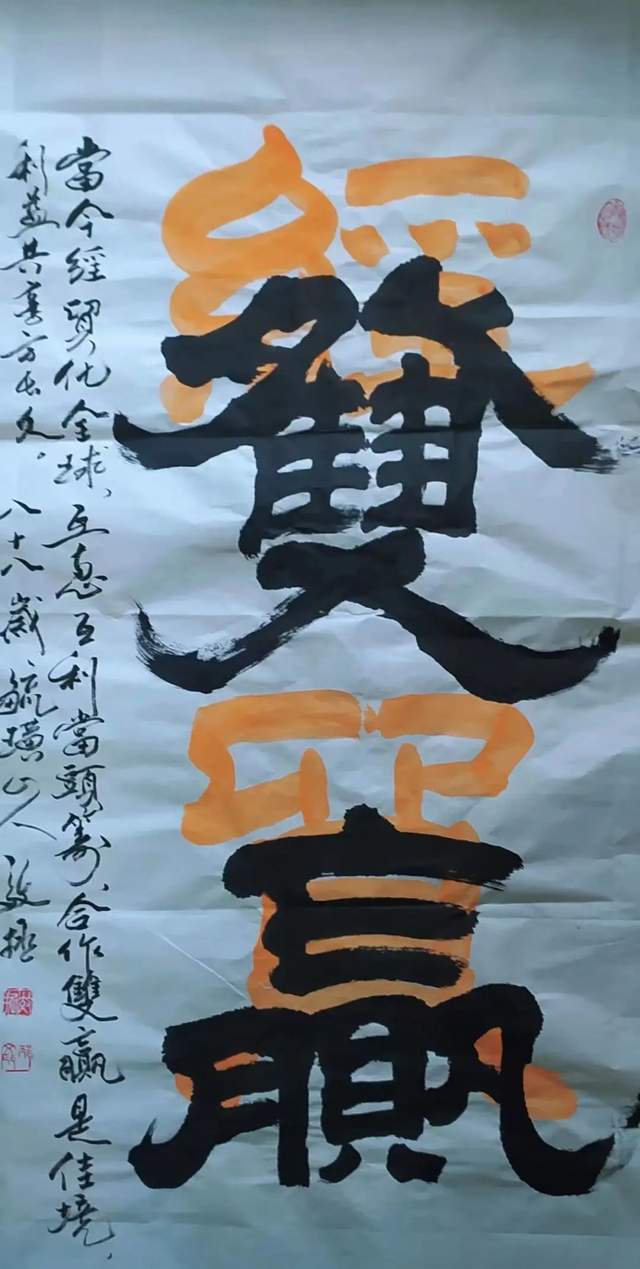 經貿
雙贏
當今經貿化全球、互惠互利當頭籌、合作雙贏是佳境、
利益共享方长久。八十八歲毓璜山人